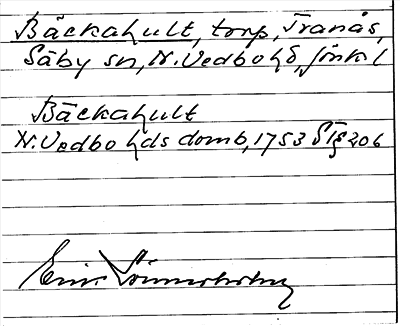 Bäckahult, torp, Tranås,
Säby sn, N. Vedbo hd, Jönk l
Bäckahult
N. Vedbo hds domb, 1753 § 206